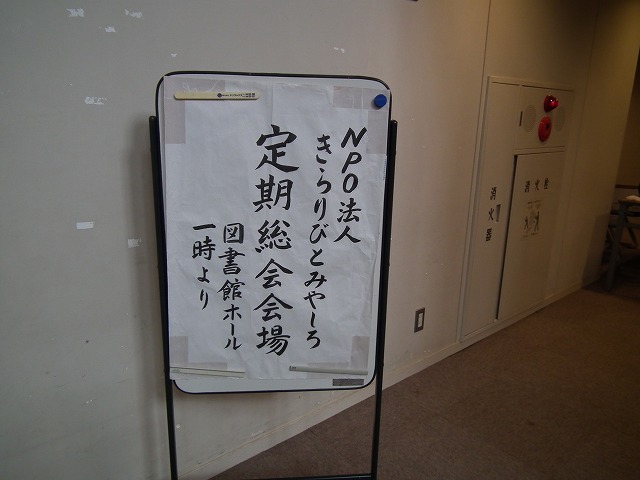 NPO法人
きらりびとみやしろ
定期総会会場
図書館ホール
一時より
消火器
消火栓